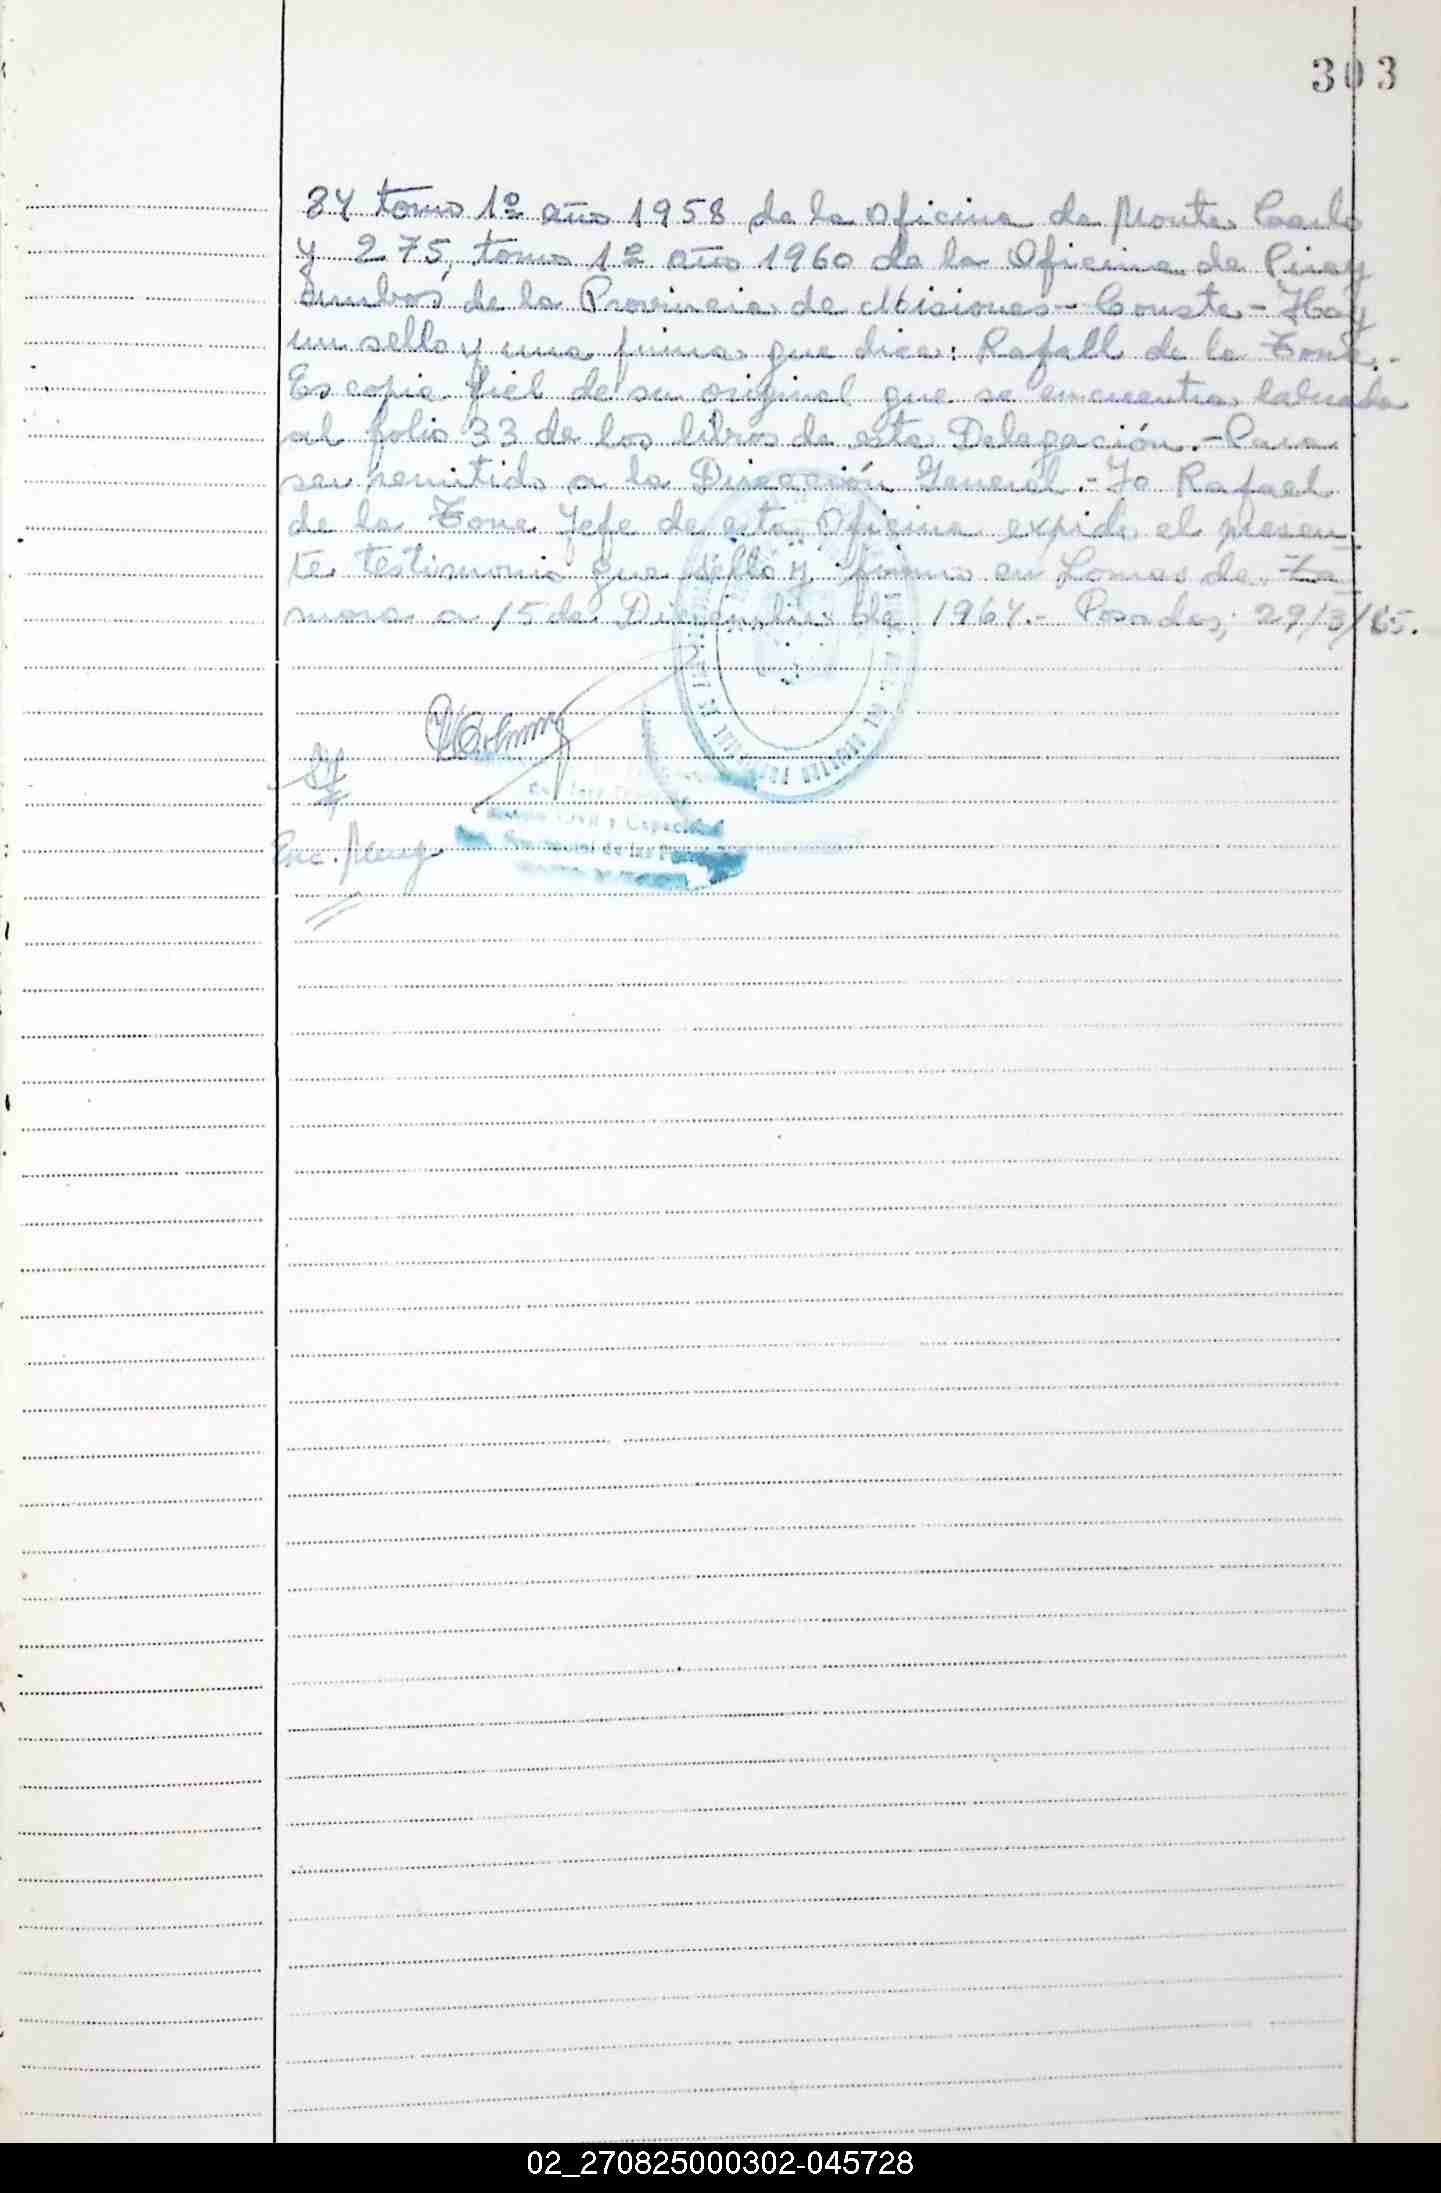 303
84 tomo 1º año 1958 de la Oficina de Monte Carlo
y 275, tomo 1º año 1960 de la Oficina de Piray
ambos de la Provincia de Misiones - Conste - Hay
un sello y una firma que dice: Rafall de la Zone.-
Es copia fiel de su original que se encuentra labrada
al folio 33 de los libros de esta Delegación.- Para
ser remitido a la Dirección General.- Yo Rafael
de la Zone Jefe de esta Oficina expido el presen
te testimonio que sello y firmo en Lomas de Za
mora a 15 de Diciembre de 1964.- Posadas, 29/3/65.
Civil y Capacidad
Provincial de las Personas
Enc.
02_270825000302-045728